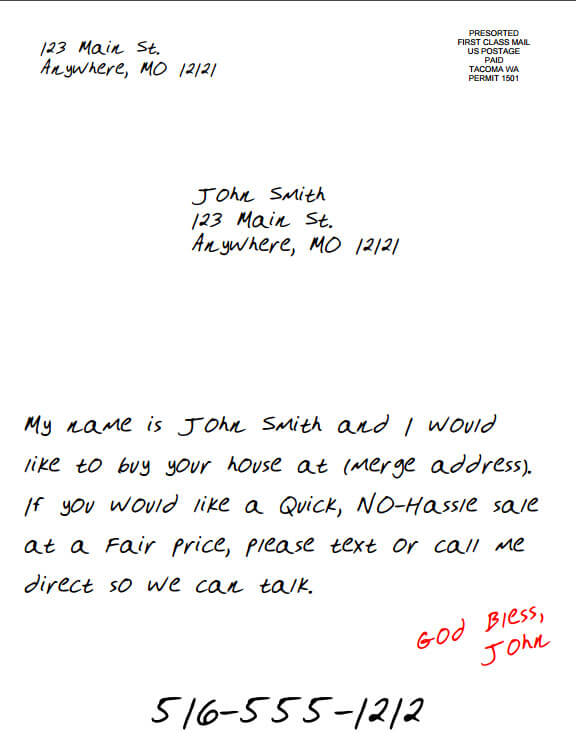 123 Main St.
Anywhere, MO 12121
PRESORTED
FIRST CLASS MAIL
US POSTAGE
PAID
TACOMA WA
PERMIT 1501
John Smith
123 Main St.
Anywhere, MO 12121
My name is John Smith and I would
like to buy your house at (merge address).
If you would like a Quick, NO-Hassle sale
at a Fair price, please text or call me
direct so we can talk.
God Bless,
John
516-555-1212